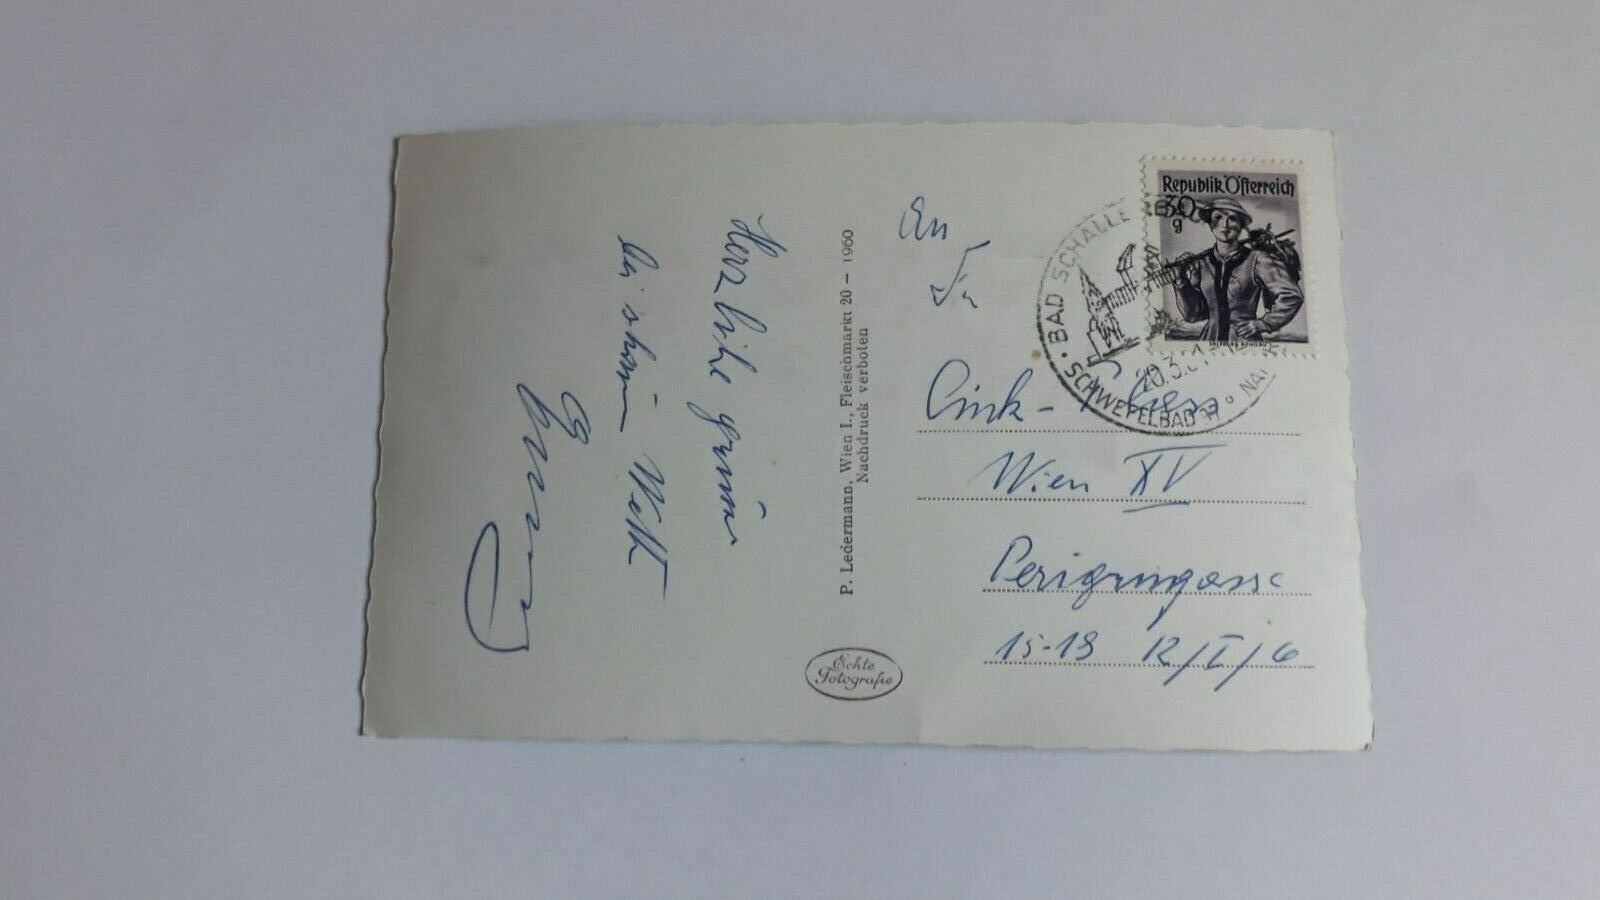 Herzliche Grüsse
bei schönem Wetter
P. Ledermann, Wien I., Fleischmarkt 20 – 1960
Nachdruck verboten
Echte
Fotografie
Republik Österreich
30
g
BAD SCHALLERBACH
SCHWEFELBAD
20.3.61
An
Fa
Cink-
Wien XV
Perigringasse
15-19 12/I/6